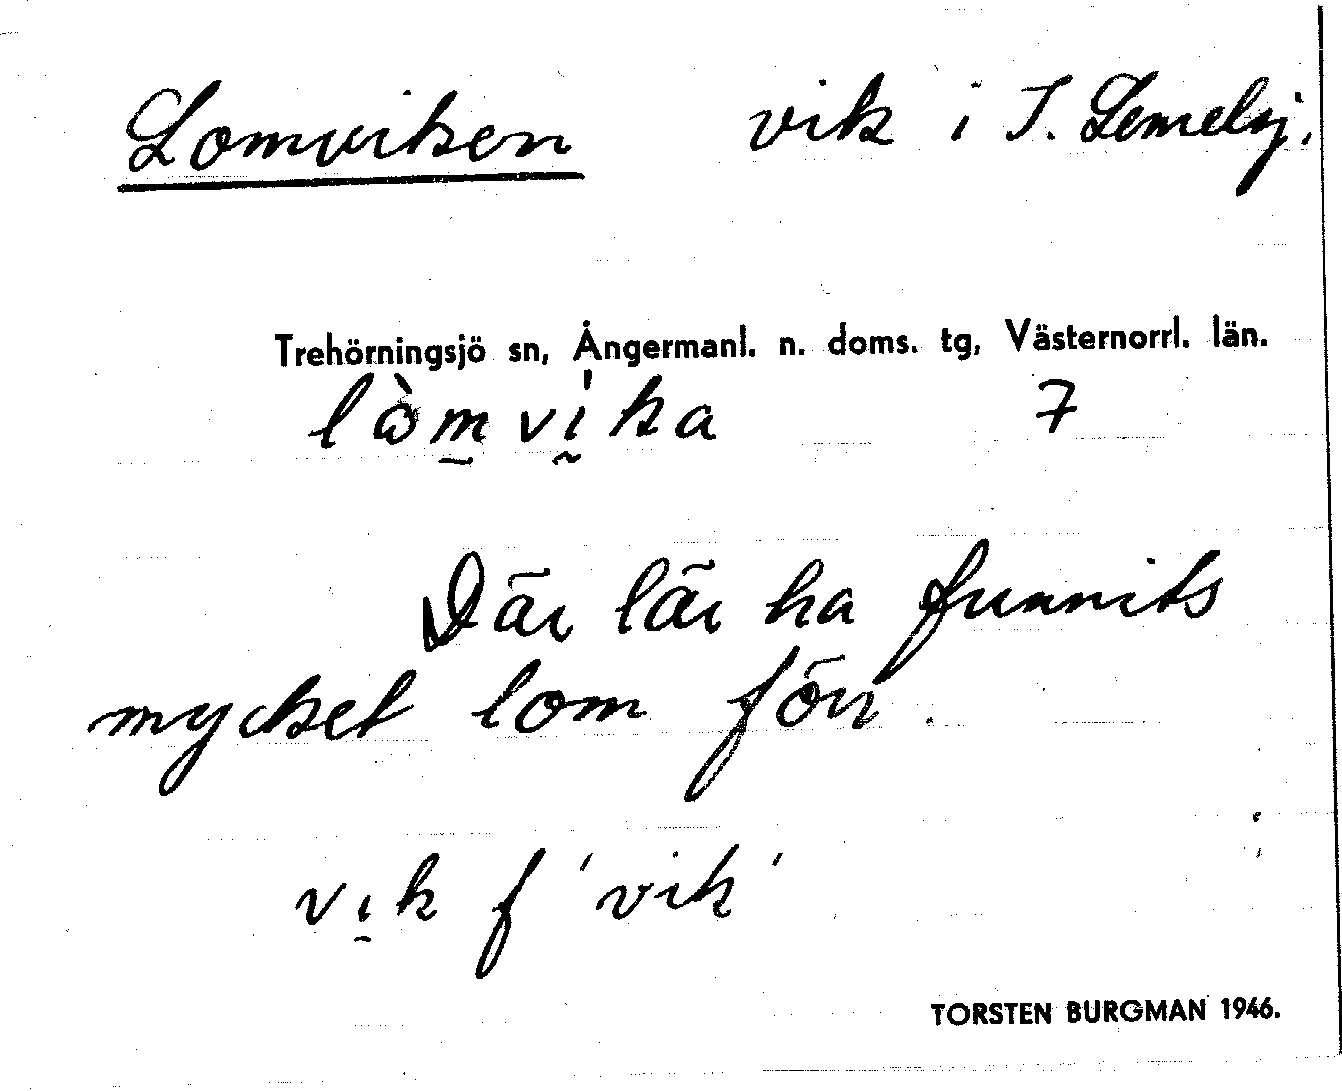 Lomviken vik i S. Lemelsj.
Trehörningsjö sn, Ångermanl. n. doms. tg, Västernorrl. län.
lòm̲vı̰́ka 7
Där lär ha funnits
mycket lom förr.
vı̲k f 'vik'
TORSTEN BURGMAN 1946.